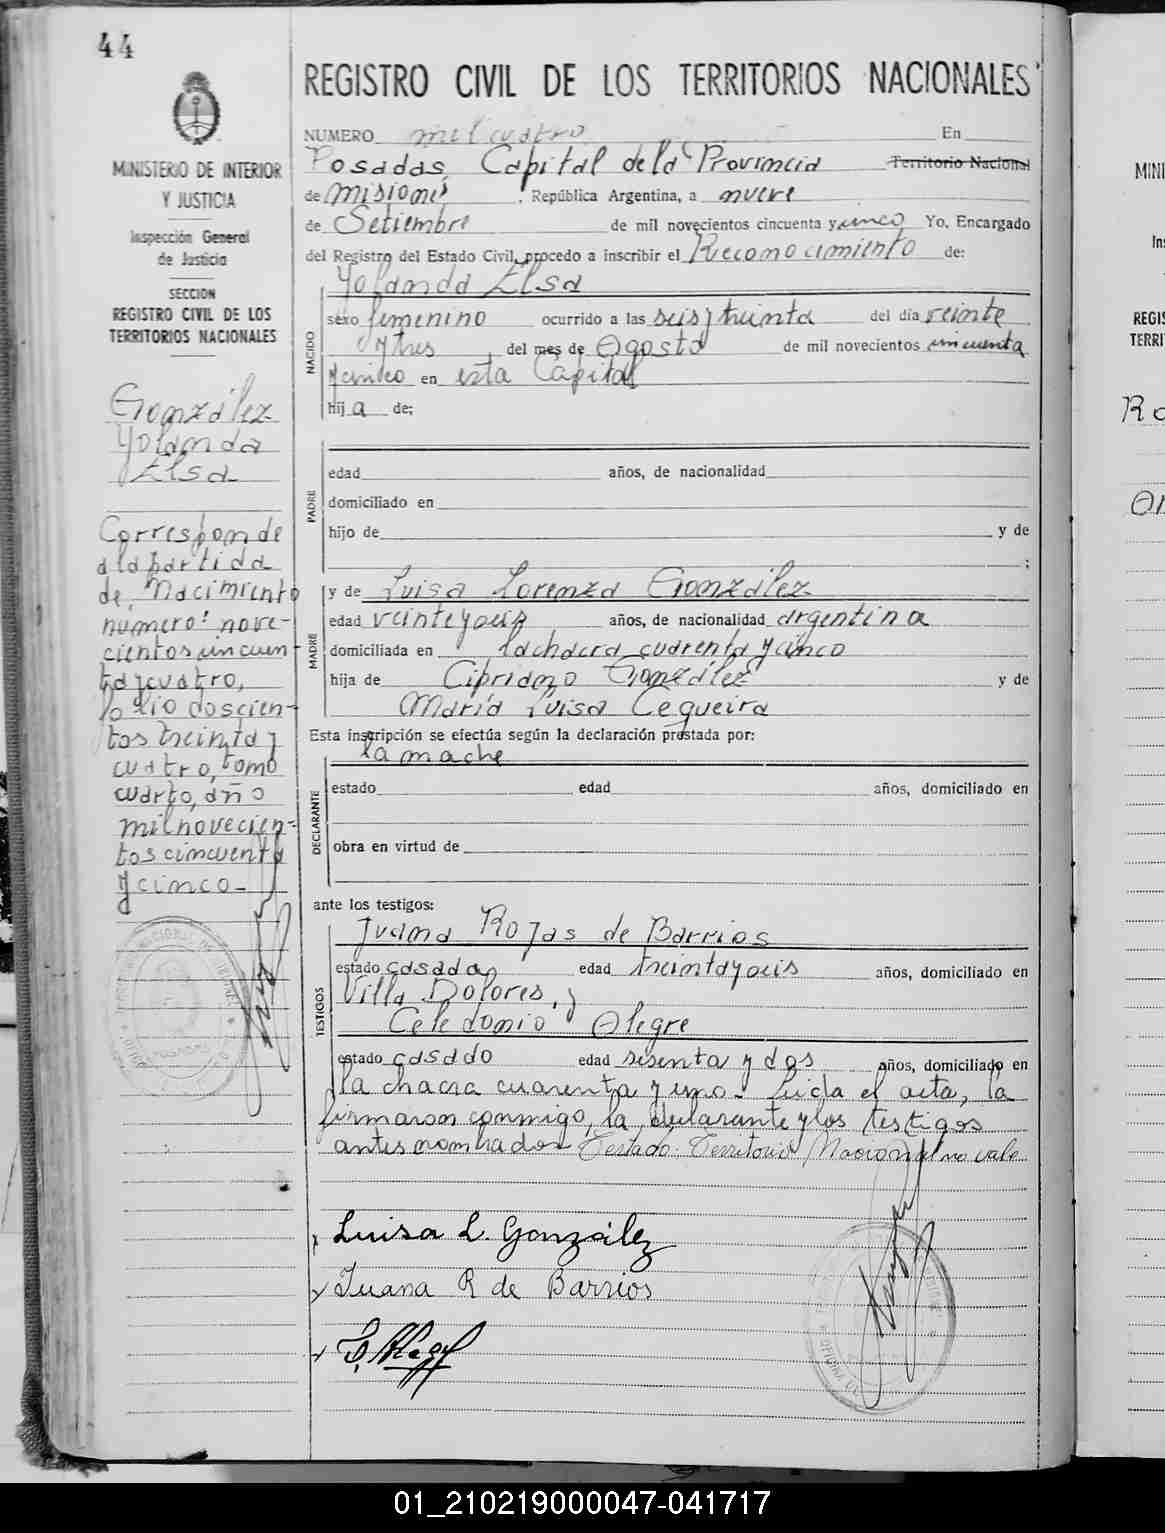 44
MINISTERIO DE INTERIOR
Y JUSTICIA
Inspección General
de Justicia
SECCION
REGISTRO CIVIL DE LOS
TERRITORIOS NACIONALES
González
Yolanda
Elsa
Corresponde
a la partida
de Nacimiento
número: nove-
cientos cincuen-
ta y cuatro,
folio doscien-
tos treinta y
cuatro, tomo
cuarto, año
mil novecien-
tos cincuenta
y cinco-
REGISTRO CIVIL DE LOS TERRITORIOS NACIONALES
NUMERO mil cuatro En
Posadas, Capital de la Provincia Territorio Nacional
de Misiones, República Argentina, a nueve
de Setiembre de mil novecientos cincuenta y cinco Yo, Encargado
del Registro del Estado Civil, procedo a inscribir el Reconocimiento de:
Yolanda Elsa
NACIDO
sexo femenino ocurrido a las seis y treinta del día veinte
y tres del mes de Agosto de mil novecientos cincuenta
y cinco en esta Capital
hij a de:
PADRE
edad años, de nacionalidad
domiciliado en
hijo de y de
;
MADRE
y de Luisa Lorenza González
edad veinte y seis años, de nacionalidad argentina
domiciliada en la chacra cuarenta y cinco
hija de Cipriano González y de
María Luisa Cequeira
Esta inscripción se efectúa según la declaración prestada por:
la madre
DECLARANTE
estado edad años, domiciliado en
obra en virtud de
ante los testigos:
TESTIGOS
Juana Rojas de Barrios
estado casada edad treinta y seis años, domiciliado en
Villa Dolores, y
Celedonio Alegre
estado casado edad sesenta y dos años, domiciliado en
la chacra cuarenta y uno- Leída el acta, la
firmaron conmigo, la declarante y los testigos
antes nombrados- Testado: Territorio Nacional no vale
Luisa L. González
Juana R de Barrios
01_210219000047-041717